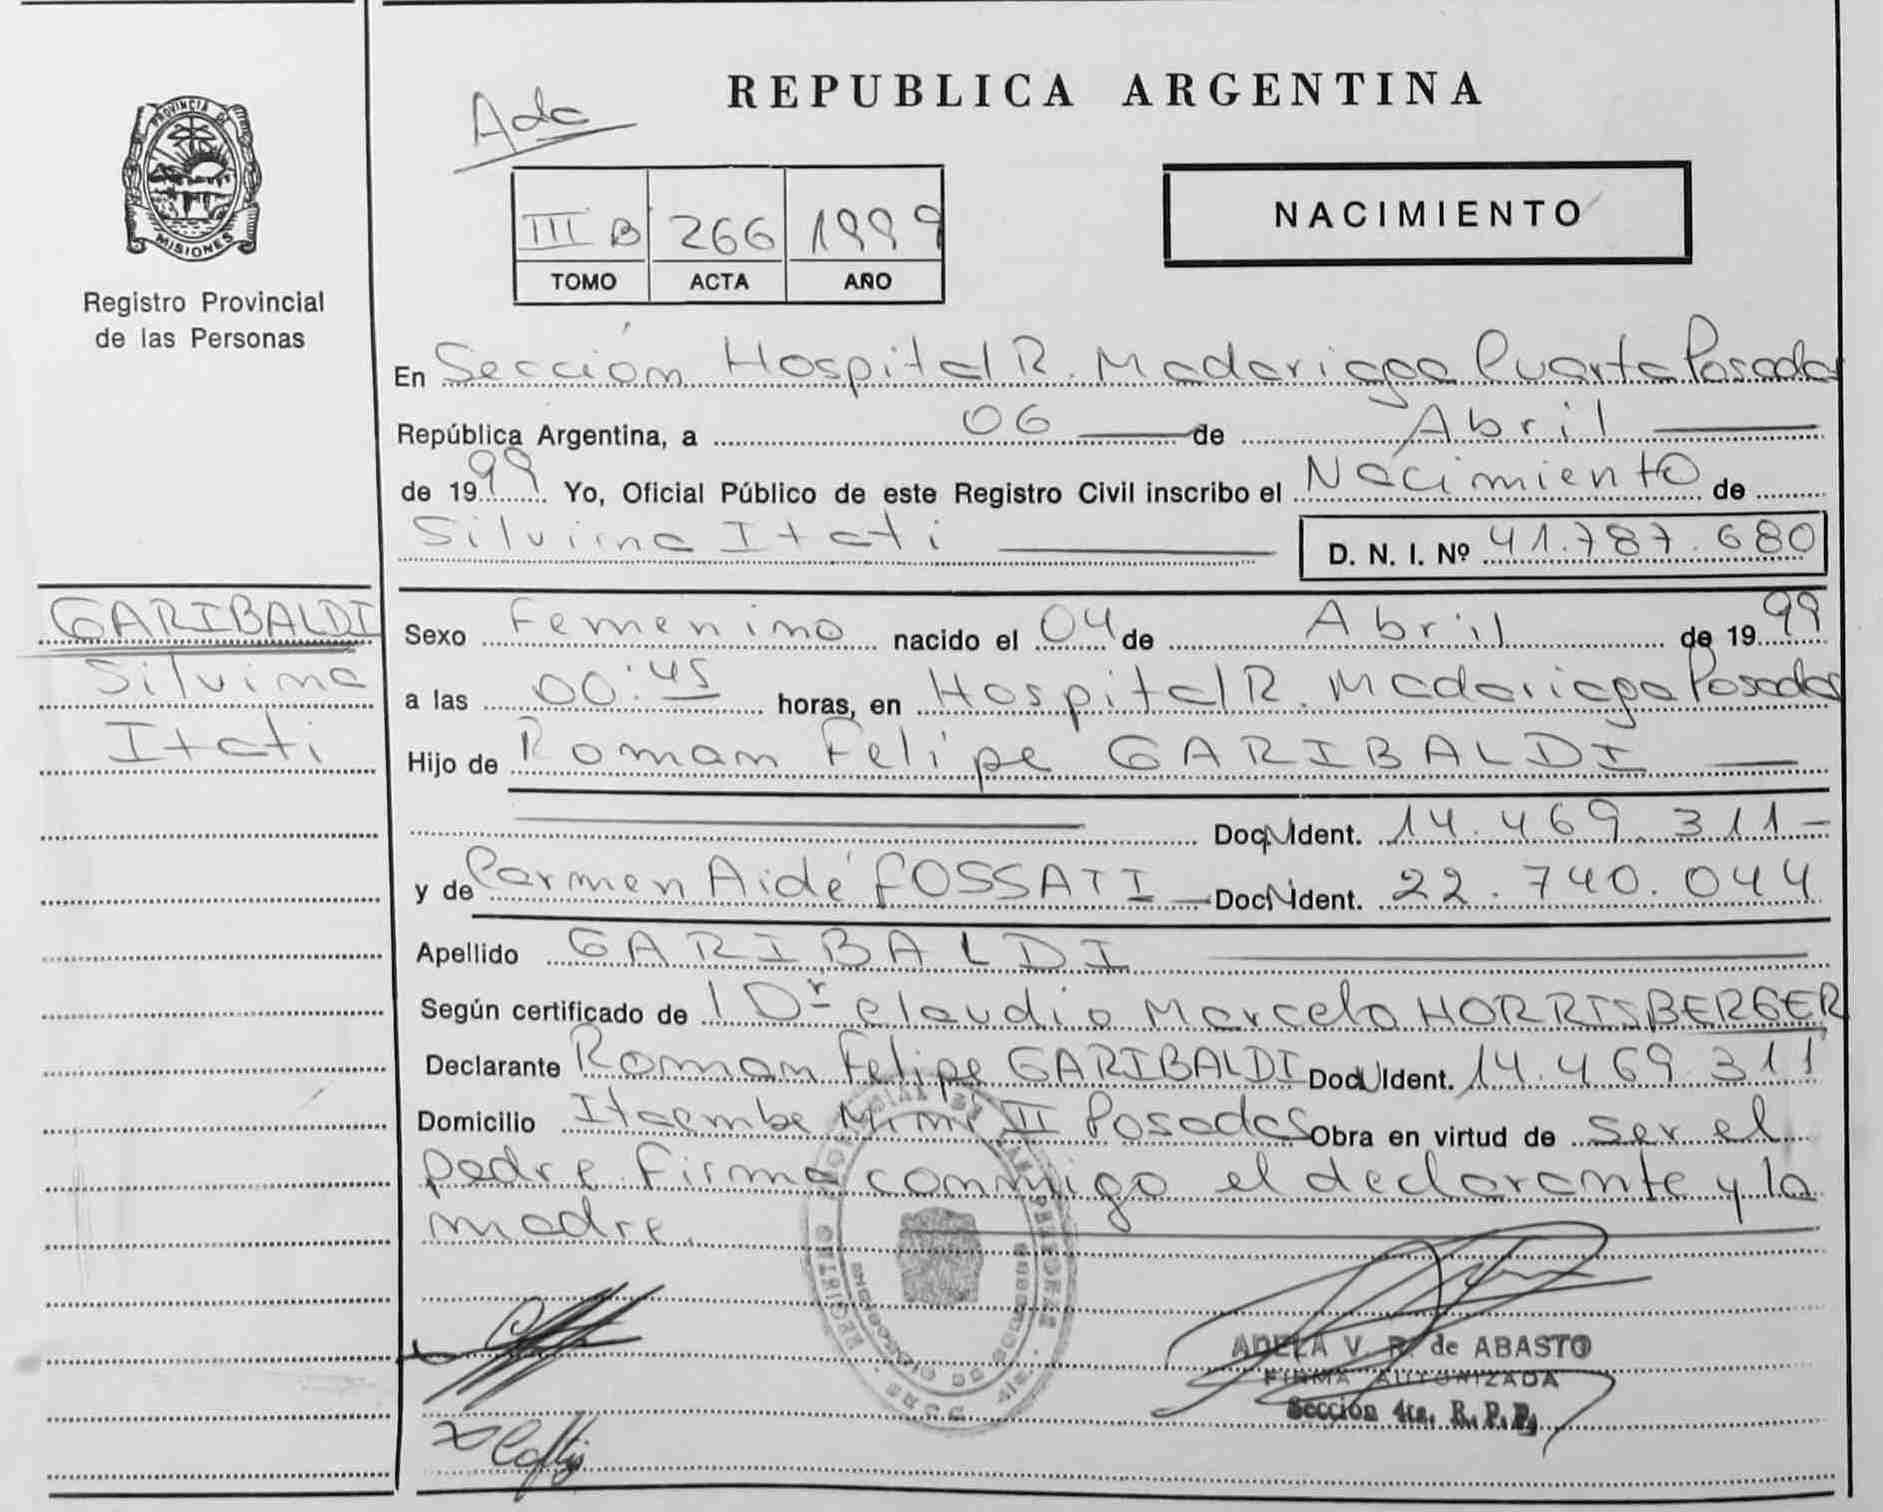 PROVINCIA DE
MISIONES
Registro Provincial
de las Personas
REPUBLICA ARGENTINA
III B 266 1999
TOMO ACTA AÑO
NACIMIENTO
En Sección Hospital R. Madariaga Cuarta Posadas
República Argentina, a 06 de Abril
de 1999 Yo, Oficial Público de este Registro Civil inscribo el Nacimiento de
Silvina Itati D. N. I. Nº 41.787.680
GARIBALDI
Silvina
Itati
Sexo Femenino nacido el 04 de Abril de 1999
a las 00:45 horas, en Hospital R. Madariaga Posadas
Hijo de Roman Felipe GARIBALDI
Doc. Ident. 14.469.311-
y de Carmen Aidé FOSSATI Doc. Ident. 22.740.044
Apellido GARIBALDI
Según certificado de l Dr Claudio Marcelo HORRISBERGER
Declarante Roman Felipe GARIBALDI Doc. Ident. 14.469.311
Domicilio Itaembe Mini II Posadas Obra en virtud de ser el
padre. Firma conmigo el declarante y la
madre.
ADELA V. R. de ABASTO
FIRMA AUTORIZADA
Sección 4ta. R. P. P.